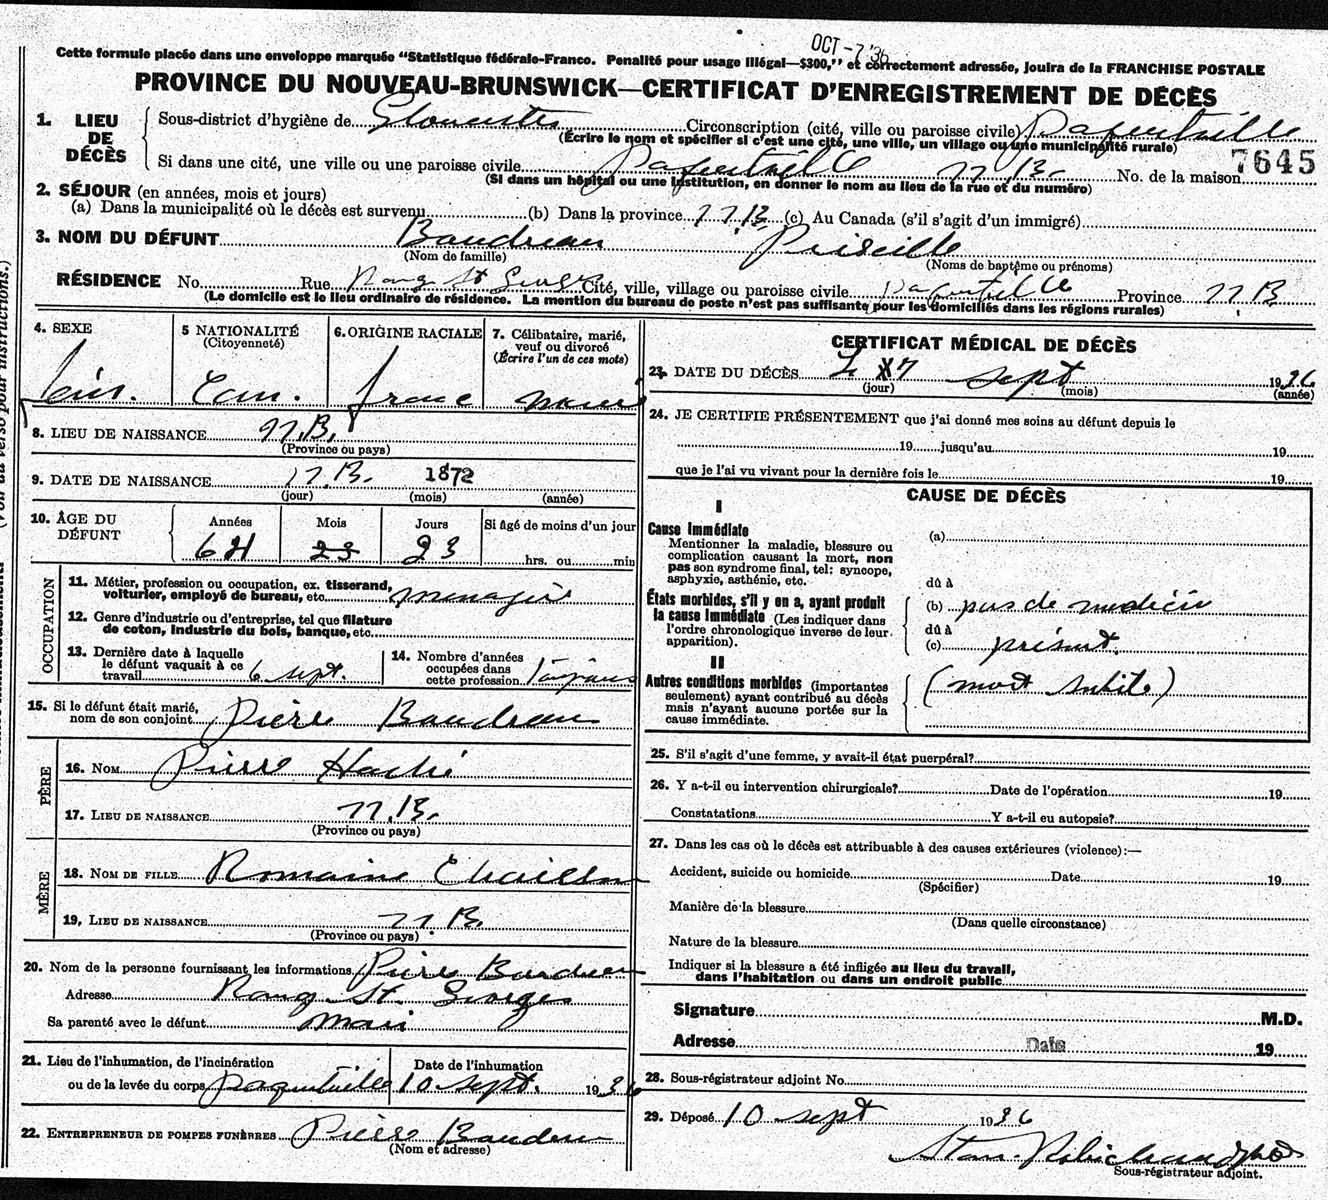 OCT -7 '36
Cette formule placée dans une enveloppe marquée "Statistique fédérale-Franco. Penalité pour usage illégal—$300," et correctement adressée, jouira de la FRANCHISE POSTALE
PROVINCE DU NOUVEAU-BRUNSWICK—CERTIFICAT D'ENREGISTREMENT DE DÉCÈS
1. LIEU DE DÉCÈS
Sous-district d'hygiène de Gloucester Circonscription (cité, ville ou paroisse civile) Paquetville
(Écrire le nom et spécifier si c'est une cité, une ville, un village ou une municipalité rurale)
Si dans une cité, une ville ou une paroisse civile Paquetville N.B. No. de la maison 7645
(Si dans un hôpital ou une institution, en donner le nom au lieu de la rue et du numéro)
2. SÉJOUR (en années, mois et jours)
(a) Dans la municipalité où le décès est survenu (b) Dans la province N.B. (c) Au Canada (s'il s'agit d'un immigré)
3. NOM DU DÉFUNT Baudreau Priscille
(Nom de famille) (Noms de baptême ou prénoms)
RÉSIDENCE No. Rue Rang St Cité, ville, village ou paroisse civile Paquetville Province N B
(Le domicile est le lieu ordinaire de résidence. La mention du bureau de poste n'est pas suffisante pour les domiciliés dans les régions rurales)
4. SEXE
5 NATIONALITÉ (Citoyenneté)
Can.
6. ORIGINE RACIALE
franc
7. Célibataire, marié, veuf ou divorcé (Écrire l'un de ces mots)
marié
8. LIEU DE NAISSANCE N.B.
(Province ou pays)
9. DATE DE NAISSANCE N.B. 1872
(jour) (mois) (année)
10. ÂGE DU DÉFUNT
Années Mois Jours Si âgé de moins d'un jour
64 23 hrs. ou min
OCCUPATION
11. Métier, profession ou occupation, ex. tisserand, voiturier, employé de bureau, etc. menagère
12. Genre d'industrie ou d'entreprise, tel que filature de coton, industrie du bois, banque, etc.
13. Dernière date à laquelle le défunt vaquait à ce travail 6 sept.
14. Nombre d'années occupées dans cette profession Toujours
15. Si le défunt était marié, nom de son conjoint Pierre Baudreau
PÈRE
16. NOM Pierre Haché
17. LIEU DE NAISSANCE N.B.
(Province ou pays)
MÈRE
18. NOM DE FILLE Romaine Chaisson
19. LIEU DE NAISSANCE N.B.
(Province ou pays)
20. Nom de la personne fournissant les informations Pierre Baudreau
Adresse Rang St. Georges
Sa parenté avec le défunt mari
21. Lieu de l'inhumation, de l'incinération ou de la levée du corps Paquetville
Date de l'inhumation
10 sept. 1936
22. ENTREPRENEUR DE POMPES FUNÈBRES Pierre Baudreau
(Nom et adresse)
CERTIFICAT MÉDICAL DE DÉCÈS
23. DATE DU DÉCÈS Le 7 sept 1936
(jour) (mois) (année)
24. JE CERTIFIE PRÉSENTEMENT que j'ai donné mes soins au défunt depuis le
19 jusqu'au 19
que je l'ai vu vivant pour la dernière fois le 19
CAUSE DE DÉCÈS
I
Cause Immédiate
Mentionner la maladie, blessure ou complication causant la mort, non pas son syndrome final, tel: syncope, asphyxie, asthénie, etc.
(a)
dû à
États morbides, s'il y en a, ayant produit la cause immédiate (Les indiquer dans l'ordre chronologique inverse de leur apparition).
(b) pas de medecin
dû à
(c) présent.
II
Autres conditions morbides (importantes seulement) ayant contribué au décès mais n'ayant aucune portée sur la cause immédiate.
(mort subite)
25. S'il s'agit d'une femme, y avait-il état puerpéral?
26. Y a-t-il eu intervention chirurgicale? Date de l'opération 19
Constatations Y a-t-il eu autopsie?
27. Dans les cas où le décès est attribuable à des causes extérieures (violence):—
Accident, suicide ou homicide Date 19
(Spécifier)
Manière de la blessure
(Dans quelle circonstance)
Nature de la blessure
Indiquer si la blessure a été infligée au lieu du travail, dans l'habitation ou dans un endroit public
Signature M.D.
Adresse Date 19
28. Sous-régistrateur adjoint No.
29. Déposé 10 sept 1936
Stan. Robichaud
Sous-régistrateur adjoint.